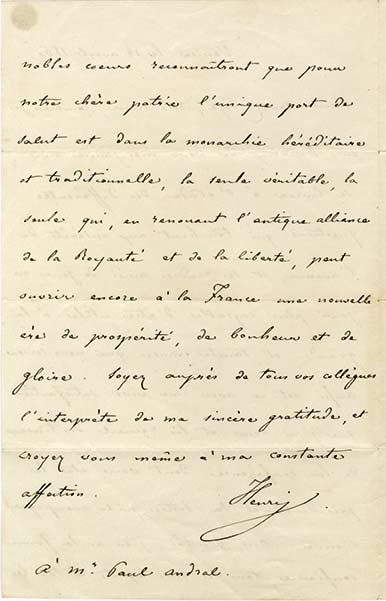 nobles cœurs reconnaîtront que pour
notre chère patrie l'unique port de
salut est dans la monarchie héréditaire
et traditionnelle, la seule véritable, la
seule qui, en renouant l'antique alliance
de la Royauté et de la liberté, peut
ouvrir encore à la France une nouvelle
ère de prospérité, de bonheur et de
gloire. Soyez auprès de tous vos collègues
l'interprète de ma sincère gratitude, et
croyez vous même à ma constante
affection.
Henri
à Mr. Paul Andral.